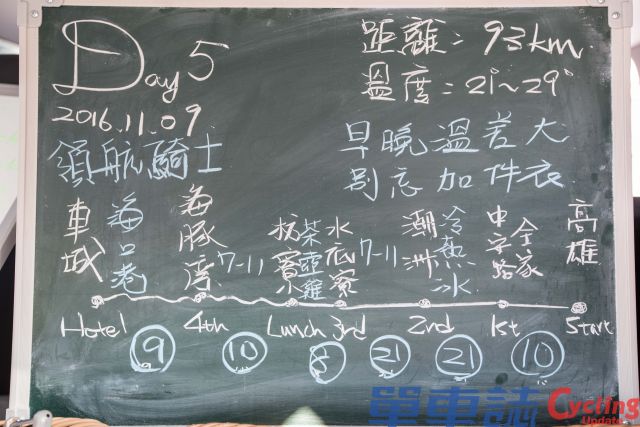 Day 5
距離：93km
2016.11.09
溫度：21°~29°
領航騎士
早晚溫差大
別忘加件衣
車城
海口港
海豚灣
7-11
枋寮
茶壺雞
水底寮
7-11
潮州
冷熱冰
中字路
全家
高雄
Hotel
4th
Lunch
3rd
2nd
1st
Start
9
10
8
21
21
10
單車誌
Cycling
Update